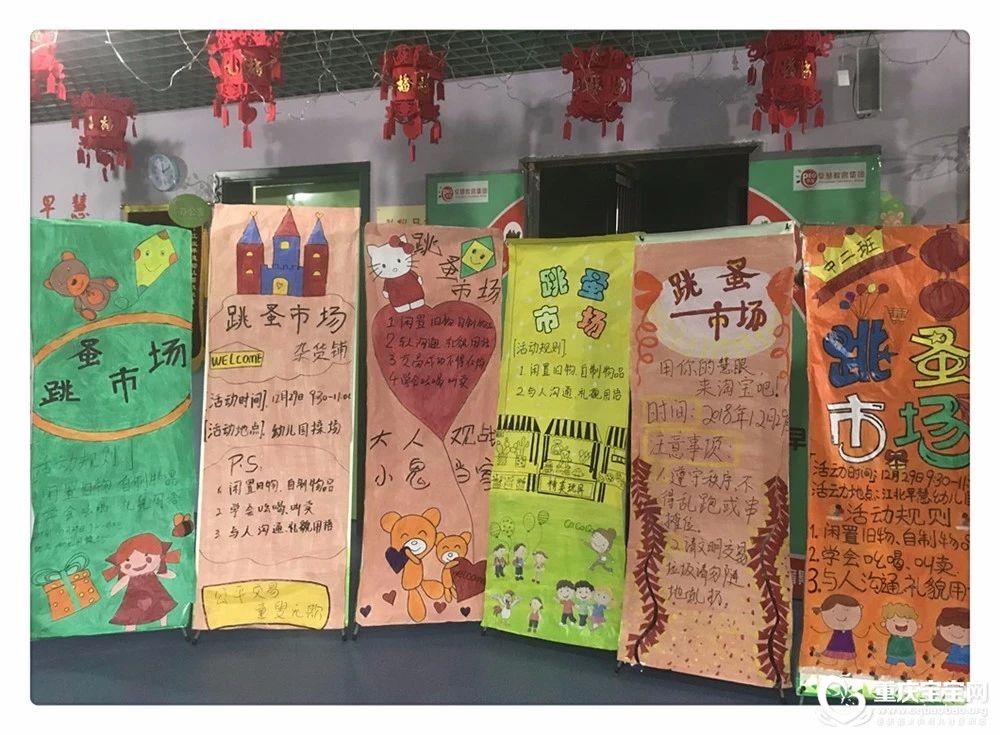 早慧
早慧教育集团
早慧教育集团
跳蚤市场
活动规则
闲置旧物 自制物品
跳蚤市场
WELCOME
杂货铺
活动时间:12月29日 9:30-11:00
活动地点:幼儿园操场
P.S:
1.闲置旧物、自制物品
2.学会吆喝、叫卖
3.与人沟通、礼貌用语
公平交易
童叟无欺
跳蚤市场
1.闲置旧物 自制物品
2.与人沟通 礼貌用语
4.学会吆喝 叫卖
大人 观战
小鬼 当家
Welcome
跳蚤
市场
活动规则:
1.闲置旧物、自制物品
2.与人沟通、礼貌用语
精美玩具
跳蚤
市场
用你的慧眼
来淘宝吧!
时间:2018年12月29
注意事项:
1.遵守秩序,不
得乱跑或串
摊位.
2.请文明交易
垃圾请勿随
地乱扔.
中二班
跳蚤
市场
活动时间:12月29日9:30-11:
活动地点:江北早慧幼儿
活动规则
1.闲置旧物、自制物品
2.学会吆喝、叫卖
3.与人沟通礼貌用
重庆宝宝网
www.cqbaobao.org